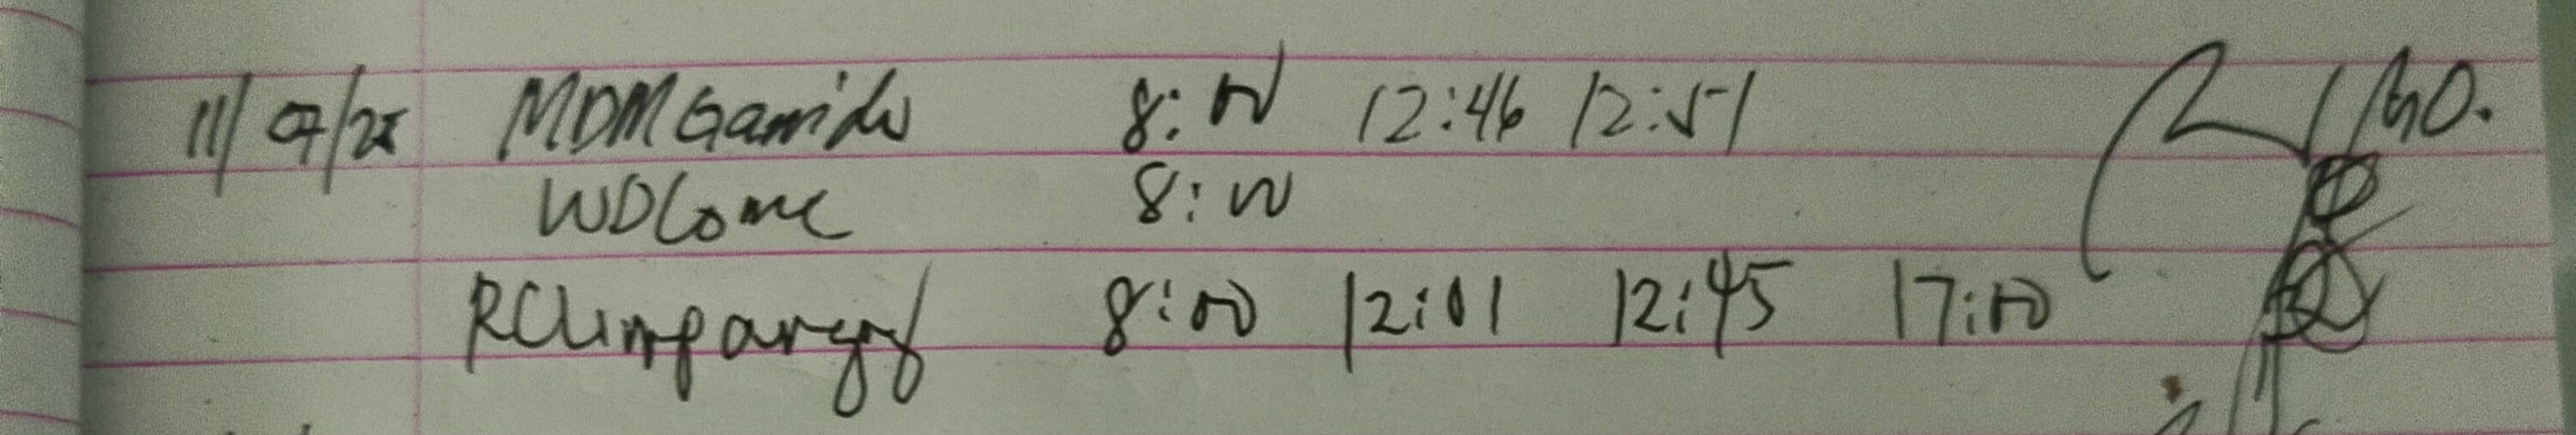 11/07/25 MDMGarrido 8:00 12:46 12:51
WDLome 8:00
RCLimpangog 8:00 12:01 12:45 17:00